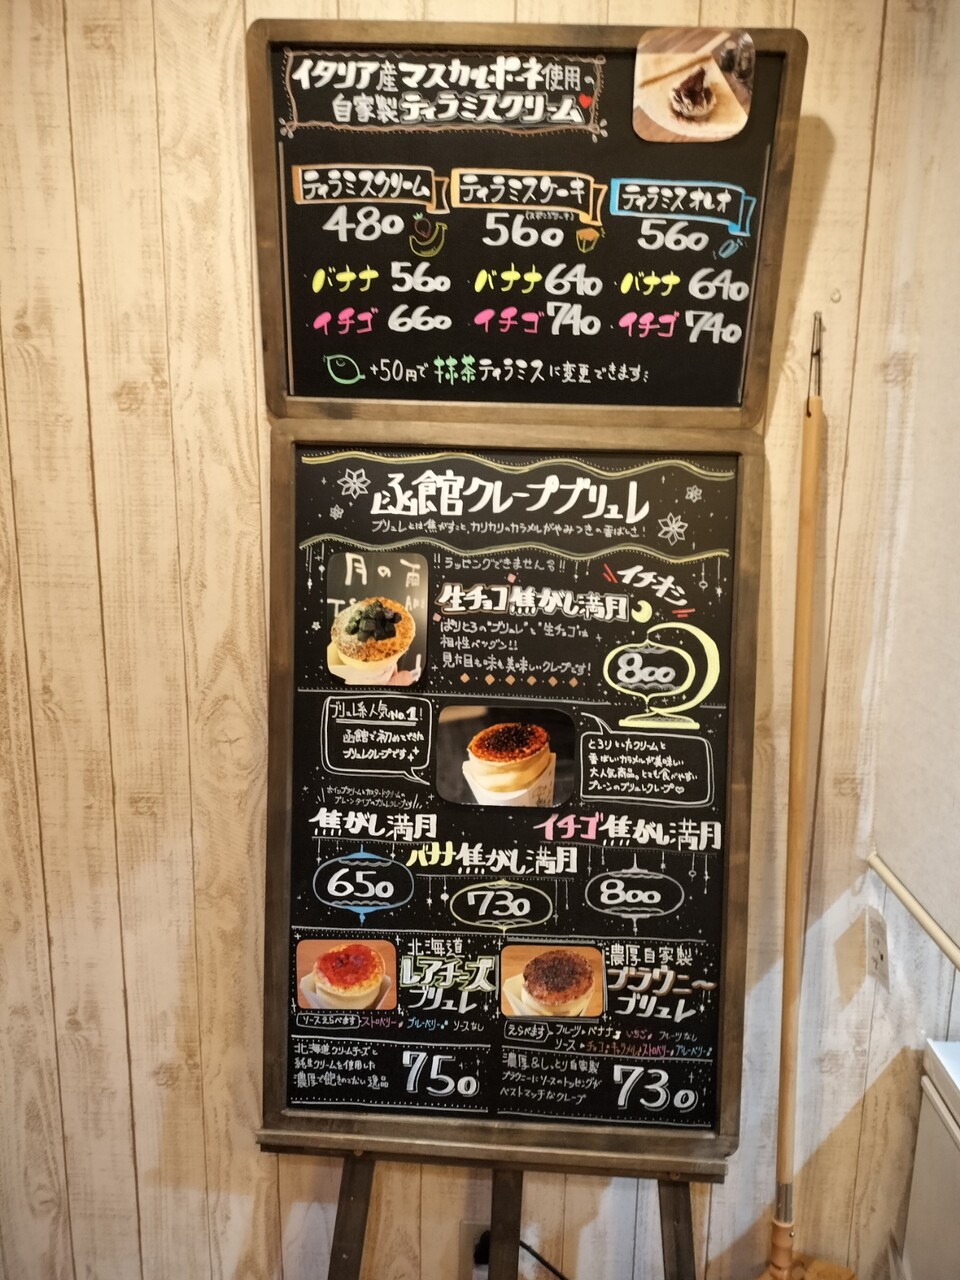 イタリア産マスカルポーネ使用の
自家製ティラミスクリーム
ティラミスクリーム
480
バナナ 560
イチゴ 660
ティラミスケーキ
560
バナナ 640
イチゴ 740
ティラミスオレオ
560
バナナ 640
イチゴ 740
+50円で抹茶ティラミスに変更できます
函館クレープブリュレ
ブリュレとは焦がすこと、カリカリのカラメルがやみつきの香ばしさ!
月の雨
!!ラッピングできません!!
イチオシ
生チョコ焦がし満月
ぱりとろの"ブリュレ"と"生チョコ"は
相性バツグン!!
見た目も味も美味しいクレープです!
800
ブリュレ系人気No.1!
函館で初めてできた
ブリュレクレープです
とろりとしたクリームと
香ばしいカラメルが美味しい
大人気商品。とても食べやすい
プレーンのブリュレクレープ♡
ホイップクリームとカスタードクリームの
プレーンタイプのブリュレクレープです
焦がし満月
650
バナナ焦がし満月
730
イチゴ焦がし満月
800
北海道
レアチーズ
ブリュレ
ソースえらべます
ストロベリー ブルーベリー ソースなし
北海道クリームチーズと
純生クリームを使用した
濃厚で飽きのこない逸品
750
濃厚自家製
ブラウニー
ブリュレ
えらべます フルーツ バナナ いちご フルーツなし
ソース チョコ キャラメル ストロベリー ブルーベリー
濃厚&しっとり自家製
ブラウニーにソースのトッピングが
ベストマッチなクレープ
730